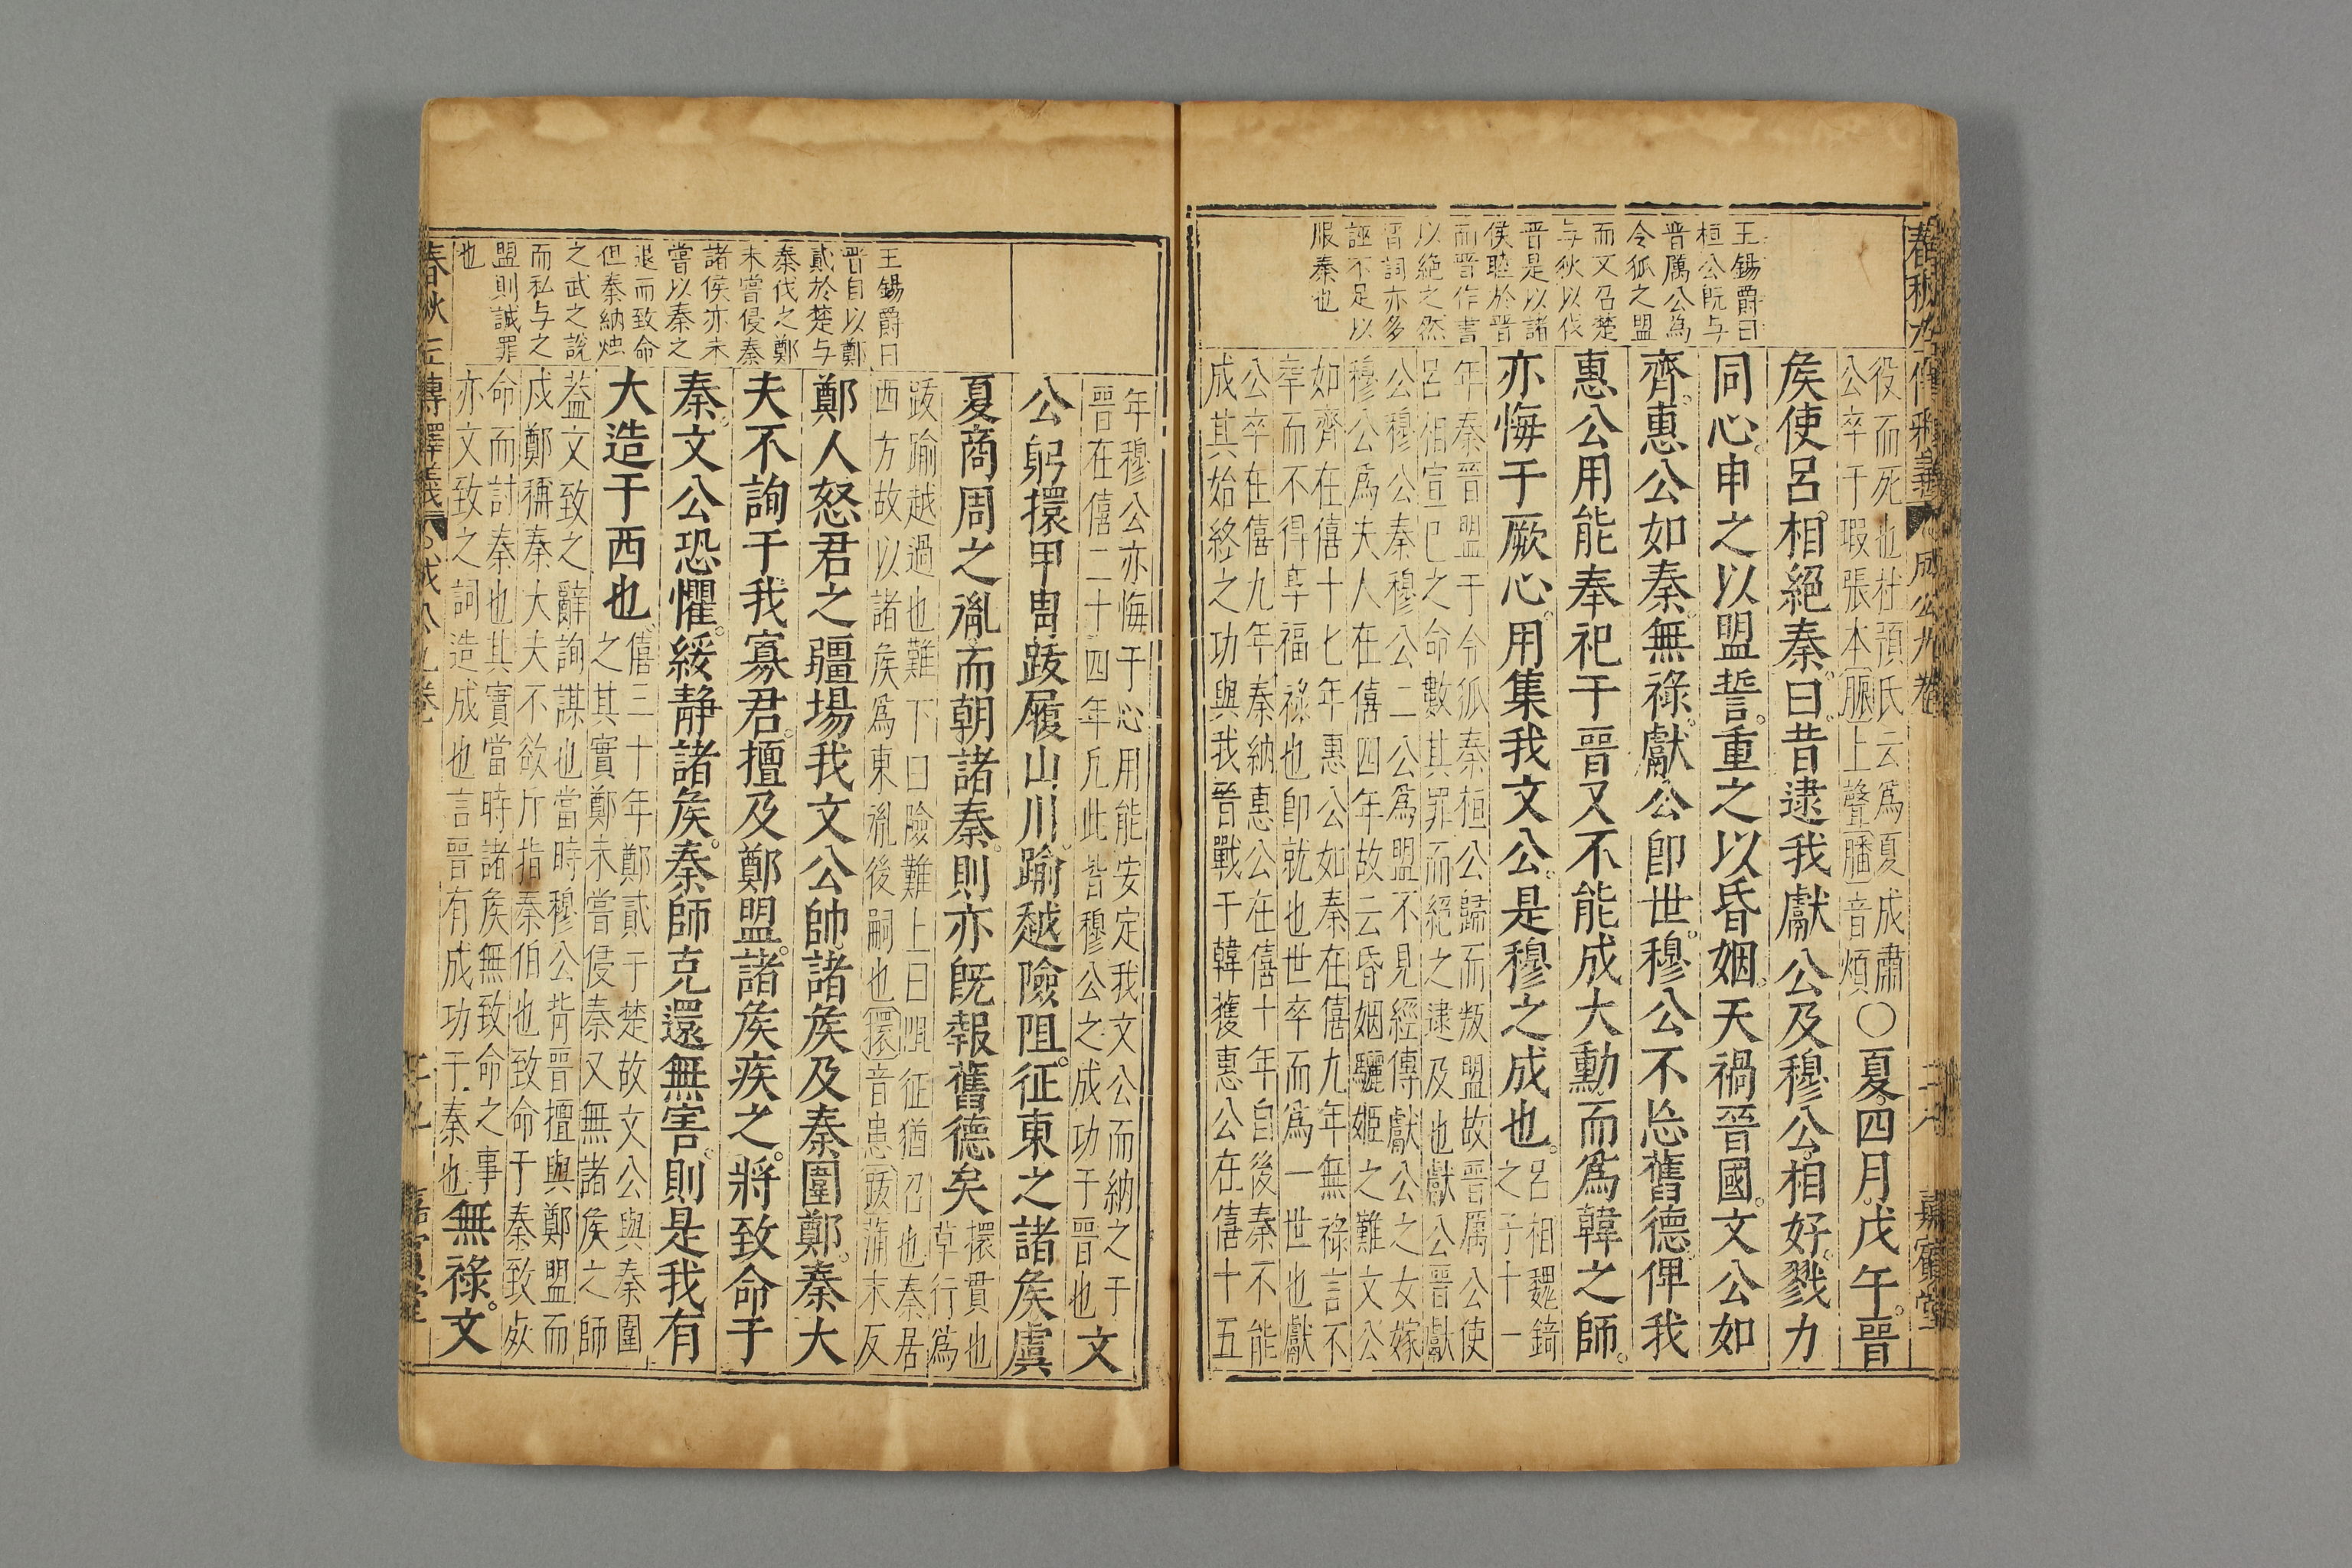 春秋左傳釋義 成公九卷 嘉賓堂
王錫爵曰
桓公既与
晋厲公為
令狐之盟
而又召楚
与狄以伐
晋是以諸
侯睦於晋
而晋作書
以絶之然
詞亦多
誣不足以
服秦也
役而死也杜預氏云爲夏成肅
公卒于瑕張本脤上聲膰音煩
〇夏四月戊午。晉
矦使呂相絕秦。曰。昔逮我獻公及穆公。相好。戮力
同心。申之以盟誓。重之以昏姻。天禍晉國。文公如
齊。惠公如秦。無祿。獻公卽世。穆公不忘舊德。俾我
惠公用能奉祀于晉。又不能成大勳。而爲韓之師。
亦悔于厥心。用集我文公。是穆之成也。
呂相魏錡
之子十一
年秦晉盟于令狐秦桓公歸而叛盟故晉厲公使
呂相宣已之命數其罪而絕之逮及也獻公晉獻
公穆公秦穆公二公爲盟不見經傳獻公之女嫁
穆公爲夫人在僖四年故云昏姻驪姬之難文公
如齊在僖十七年惠公如秦在僖九年無祿言不
幸而不得享福祿也卽就也世卒而爲一世也獻
公卒在僖九年秦納惠公在僖十年自後秦不能
成其始終之功與我晉戰于韓獲惠公在僖十五
年穆公亦悔于心用能安定我文公而納之于
晉在僖二十四年凡此皆穆公之成功于晉也
文
公躬擐甲冑。跋履山川。踰越險阻。征東之諸矦。虞
夏商周之胤。而朝諸秦。則亦旣報舊德矣
擐貫也
草行爲
跋踰越過也難下曰險難上曰阻征猶召也秦居
西方故以諸矦爲東胤後嗣也擐音患跋蒲末反
王錫爵曰
晋自以鄭
貳於楚与
秦伐之鄭
未嘗侵秦
諸侯亦未
嘗以秦之
退而致命
但秦納燭
之武之說
而私与之
盟則誠罪
也
鄭人怒君之疆場。我文公帥諸矦及秦圍鄭。秦大
夫不詢于我寡君。擅及鄭盟。諸矦疾之。將致命于
秦。文公恐懼。綏靜諸矦。秦師克還無害。則是我有
大造于西也
僖三十年鄭貳于楚故文公與秦圍
之其實鄭未嘗侵秦又無諸矦之師
蓋文致之辭詢謀也當時穆公背晉擅與鄭盟而
戍鄭稱秦大夫不欲斥指秦伯也致命于秦致
命而討秦也其實當時諸矦無致命之事
亦文致之詞造成也言晉有成功于秦也
無祿。文
春秋左傳釋義 嘉賓堂